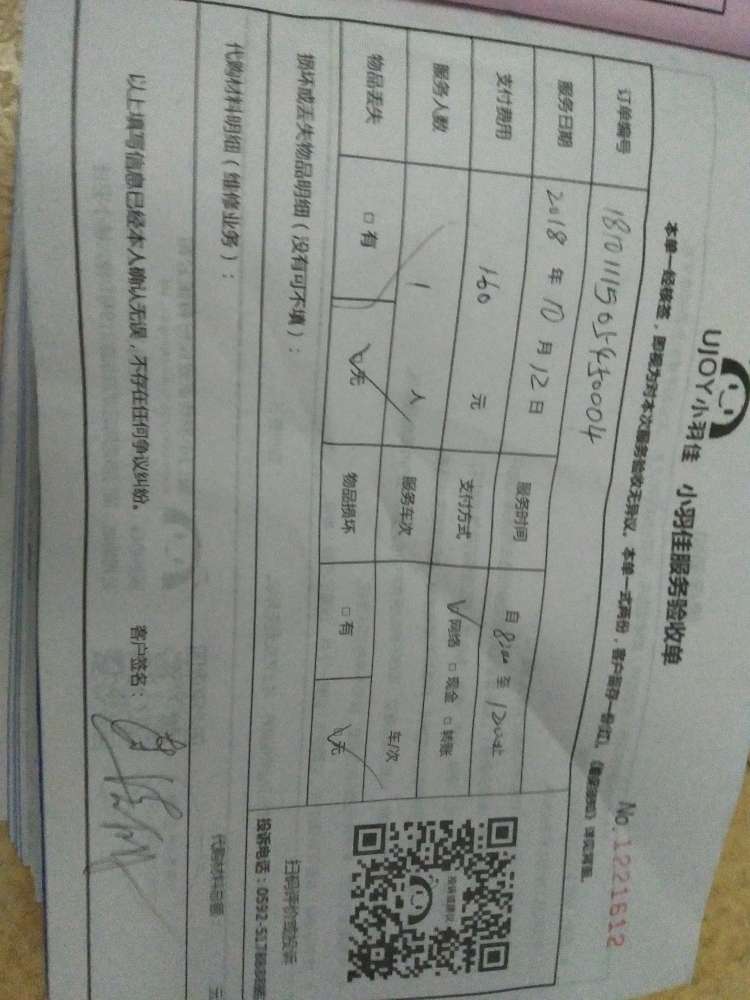 UJOY小羽佳 小羽佳服务验收单 No.1221612
本单一经核签，即视为对本次服务验收无异议。本单一式两份，客户留存一份(红)。
订单编号
服务日期 2018 年 10 月 12 日 服务时间 自 8:00 至 12:00止
支付费用 160 元 支付方式 网络 □ 现金 □ 转账
服务人数 1 人 服务车次 车/次
物品丢失 □ 有 □ 无 物品损坏 □ 有 □ 无
损坏或丢失物品明细（没有可不填）：
代购材料明细（维修业务）： 代购材料总额：
投诉或建议
扫码评价或投诉
投诉电话：0592-
以上填写信息已经本人确认无误，不存在任何争议纠纷。 客户签名：